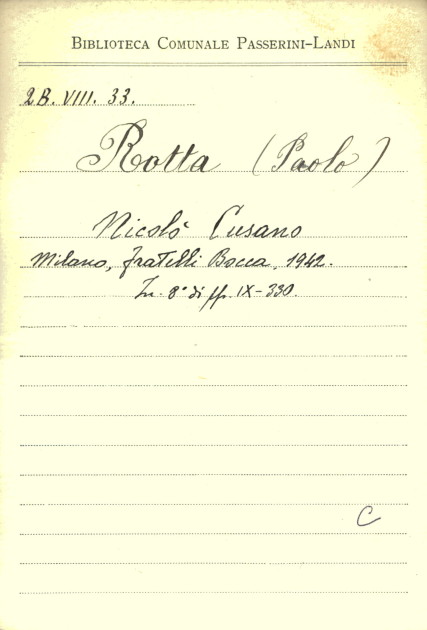 BIBLIOTECA COMUNALE PASSERINI-LANDI
2B. VIII. 33.
Rotta (Paolo)
Nicolò Cusano
Milano, fratelli Bocca, 1942.
In. 8° di pp. IX-330.
C